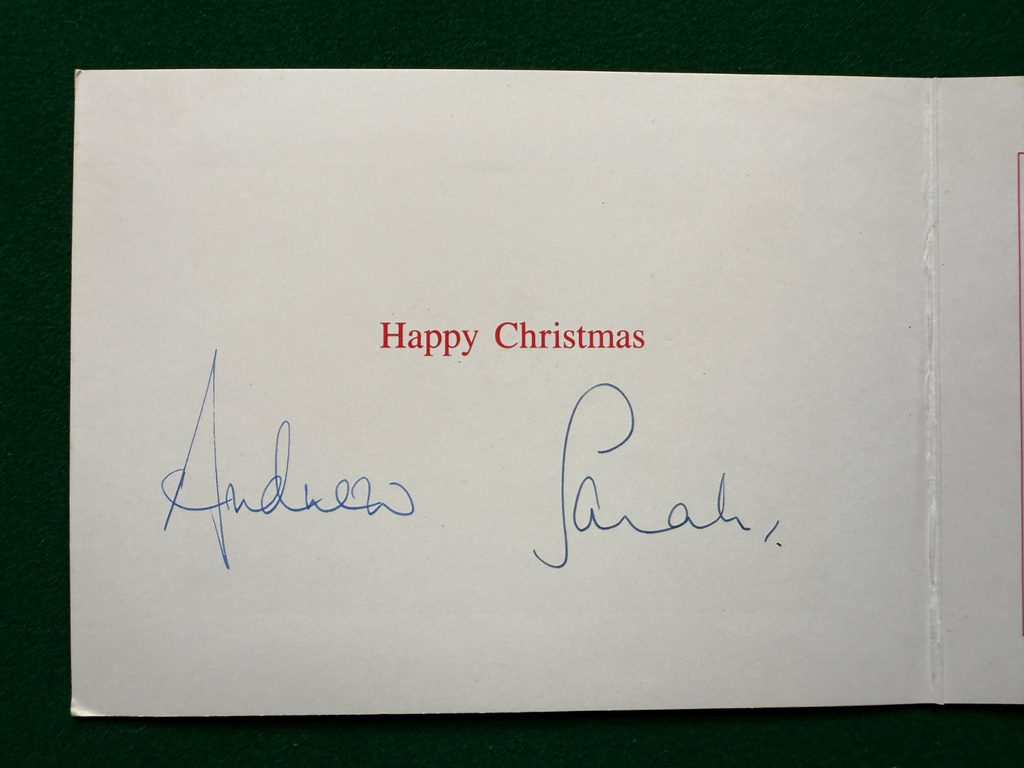 Happy Christmas
Andrew Sarah.